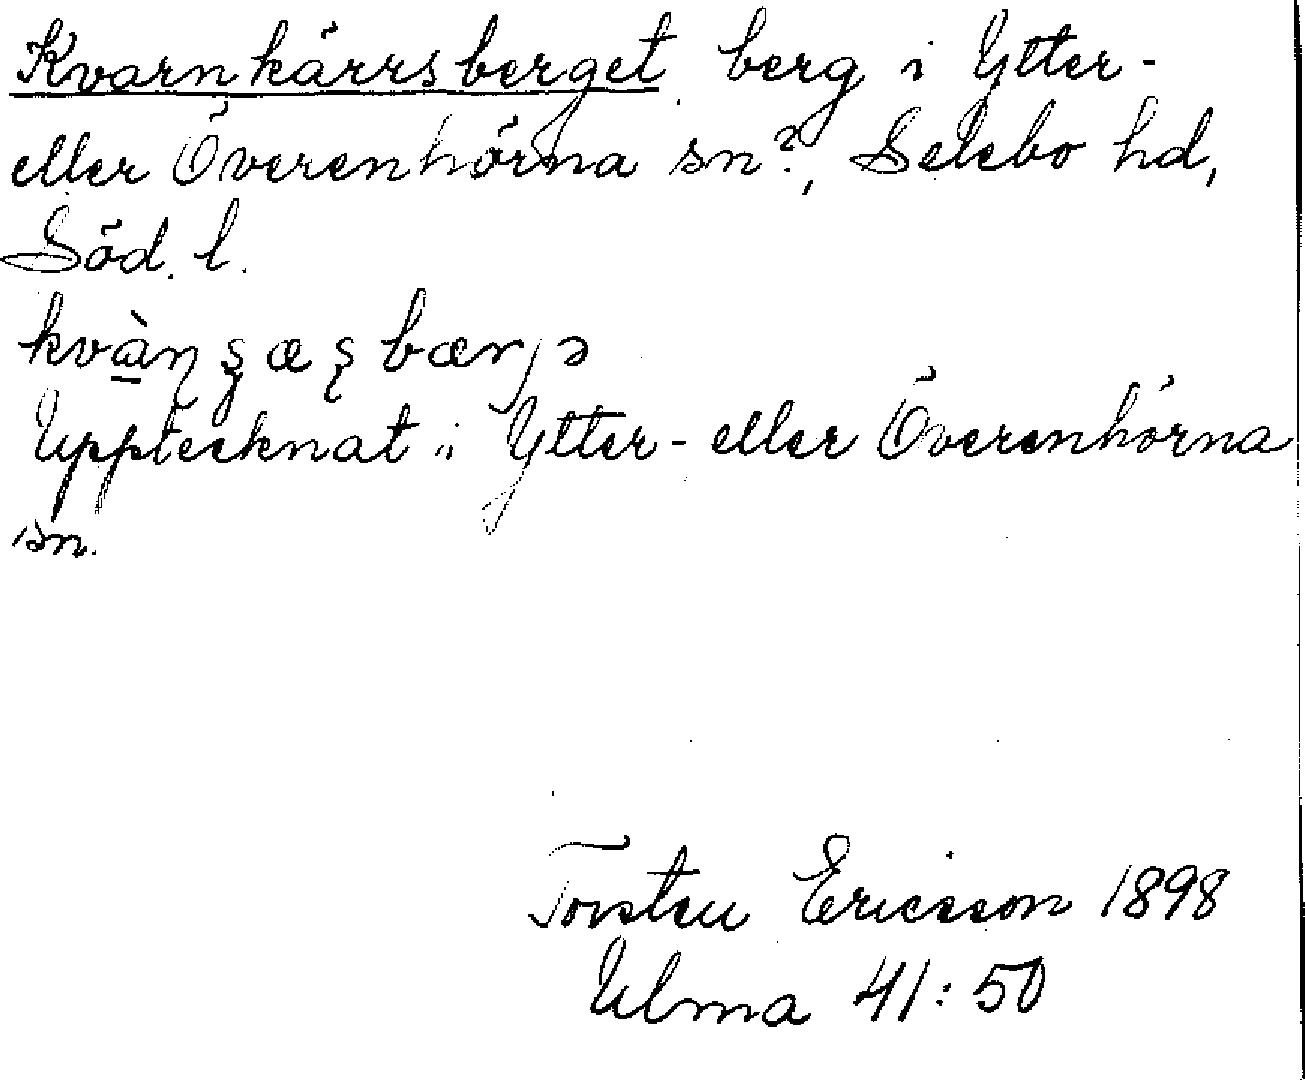 Kvarnkärrsberget berg i Ytter-
eller Överenhörna sn?, Selebo hd,
Söd. l.
Upptecknat i Ytter- eller Överenhörna
sn.
Torsten Ericsson 1898
Ulma 41:50